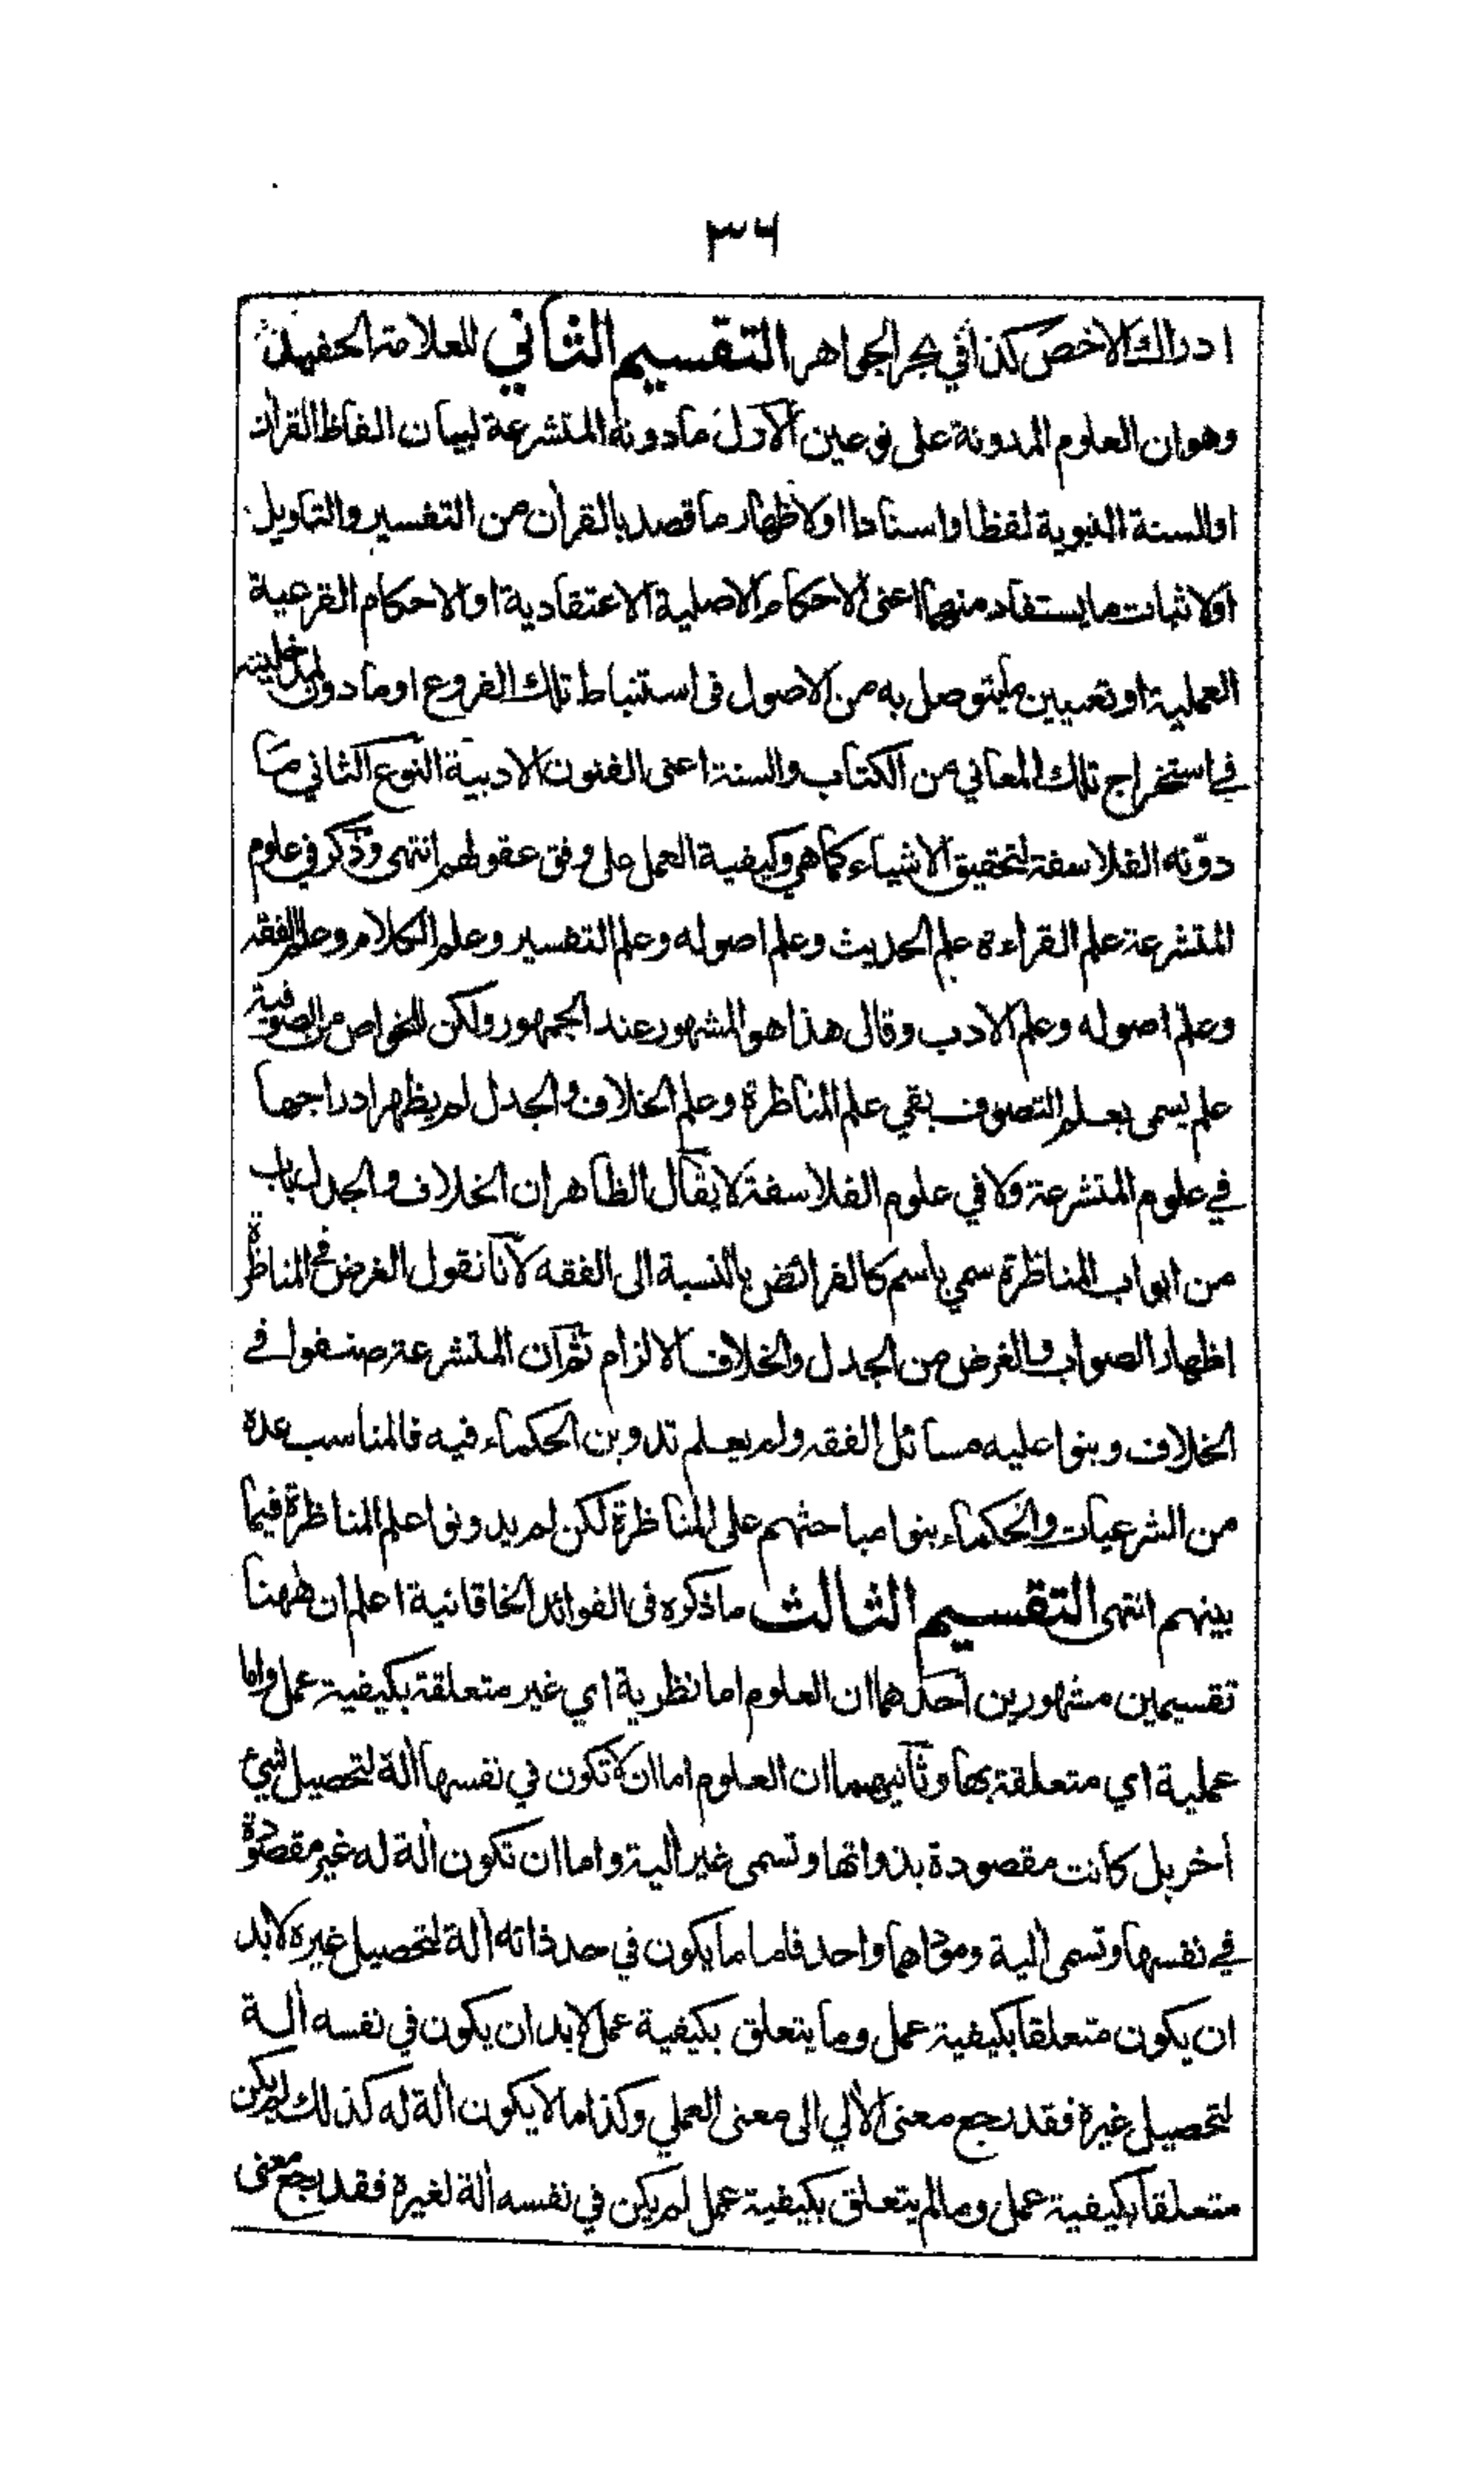 ٣٦
ادراك الاخص كذا في بحر الجواهر التقسيم الثاني للعلامة الحفيد
وهو ان العلوم المدونة على نوعين الاول ما دونه المتشرعة لبيان الفاظ القرآن
او السنة النبوية لفظا واسنادا او لاظهار ما قصد بالقرأن من التفسير والتاويل
اولاثبات ما يستفاد منهما اعنى الاحكام الاصلية الاعتقادية او الاحكام الفرعية
العملية او تعيين ما يتوصل به من الاصول فى استنباط تلك الفروع او ما دون لمدخليته
في استخراج تلك المعاني من الكتاب والسنة اعنى الفنون الادبية النوع الثاني ما
دوّنه الفلاسفة لتحقيق الاشياء كما هي وكيفية العمل على وفق عقولهم انتهى وذكر في علوم
المتشرعة علم القراءة علم الحديث وعلم اصوله وعلم التفسير وعلم الكلام وعلم الفقه
وعلم اصوله وعلم الادب وقال هذا هو المشهور عند الجمهور ولكن للخواص من الصوفية
علم يسمى بعلم التصوف بقي علم المناظرة وعلم الخلاف والجدل لم يظهر ادراجها
في علوم المتشرعة ولا في علوم الفلاسفة لا يقال الظاهر ان الخلاف والجدل باب
من ابواب المناظرة سمي باسم كالفرائض بالنسبة الى الفقه لانا نقول الغرض في المناظرة
اظهار الصواب والغرض من الجدل والخلاف الالزام ثم ان المتشرعة صنفوا في
الخلاف وبنوا عليه مسائل الفقه ولم يعلم تدوين الحكماء فيه فالمناسب عده
من الشرعيات والحكماء بنوا مباحثهم على المناظرة لكن لم يدونوا علم المناظرة فيما
بينهم انتهى التقسيم الثالث ما ذكره فى الفوائد الخاقانية اعلم ان ههنا
تقسيمين مشهورين احدهما ان العلوم اما نظرية اي غير متعلقة بكيفية عمل واما
عملية اي متعلقة بها وثانيهما ان العلوم اما ان لا تكون في نفسها ألة لتحصيل شئ
أخر بل كانت مقصودة بذواتها وتسمى غير ألية واما ان تكون ألة له غير مقصودة
في نفسها وتسمى ألية ومؤداهما واحد فاما ما يكون في حد ذاته ألة لتحصيل غيره لا بد
ان يكون متعلقا بكيفية عمل وما يتعلق بكيفية عمل لا بد ان يكون في نفسه ألة
لتحصيل غيره فقد رجع معنى الألي الى معنى العملي وكذا ما لا يكون ألة له كذلك لم يكن
متعلقا بكيفية عمل وما لم يتعلق بكيفية عمل لم يكن في نفسه ألة لغيره فقد رجع معنى